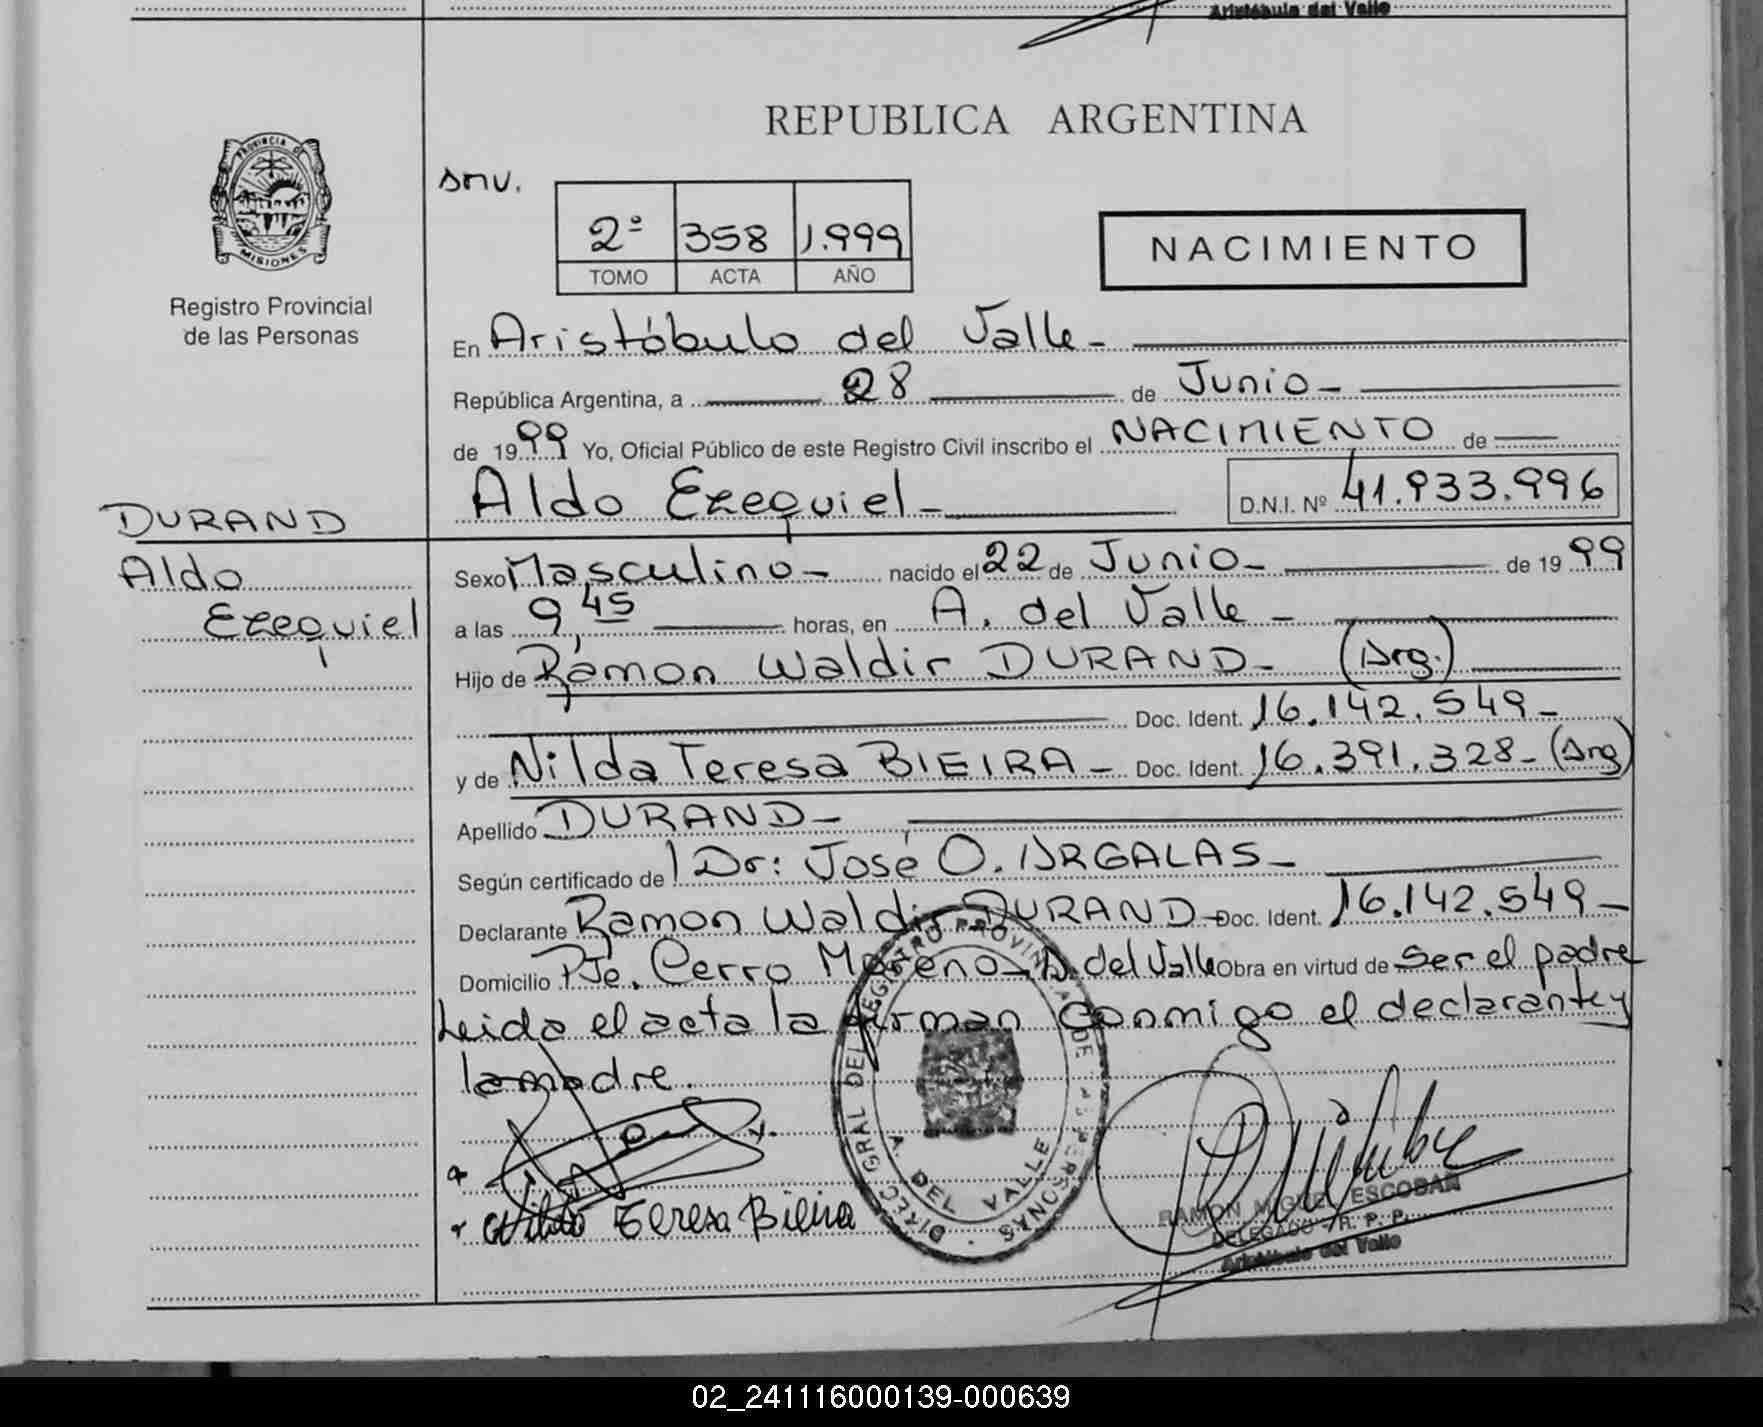 Aristóbulo del Valle
REPUBLICA ARGENTINA
PROVINCIA DE
MISIONES
Registro Provincial
de las Personas
smv.
2º 358 1.999
TOMO ACTA AÑO
NACIMIENTO
En Aristóbulo del Valle-
República Argentina, a 28 de Junio-
de 1999 Yo, Oficial Público de este Registro Civil inscribo el NACIMIENTO de
Aldo Ezequiel- D.N.I. Nº 41.933.996
DURAND
Aldo
Ezequiel
Sexo Masculino- nacido el 22 de Junio- de 1999
a las 9,45 horas, en A. del Valle-
Hijo de Ramon Waldir DURAND- (Arg.)
Doc. Ident. 16.142.549-
y de Nilda Teresa BIEIRA- Doc. Ident. 16.391.328- (Arg)
Apellido DURAND-
Según certificado de Dr: José O. ARGALAS-
Declarante Ramon Waldir DURAND- Doc. Ident. 16.142.549-
Domicilio Pje. Cerro Moreno- A. del Valle Obra en virtud de ser el padre
Leida el acta la firman conmigo el declarante y
la madre.
DIREC. GRAL DEL REGISTRO PROVINCIAL DE LAS PERSONAS
A. DEL VALLE
Nilda Teresa Bieira
RAMON MIGUEL ESCOBAR
DELEGADO R. P. P.
Aristóbulo del Valle
02_241116000139-000639